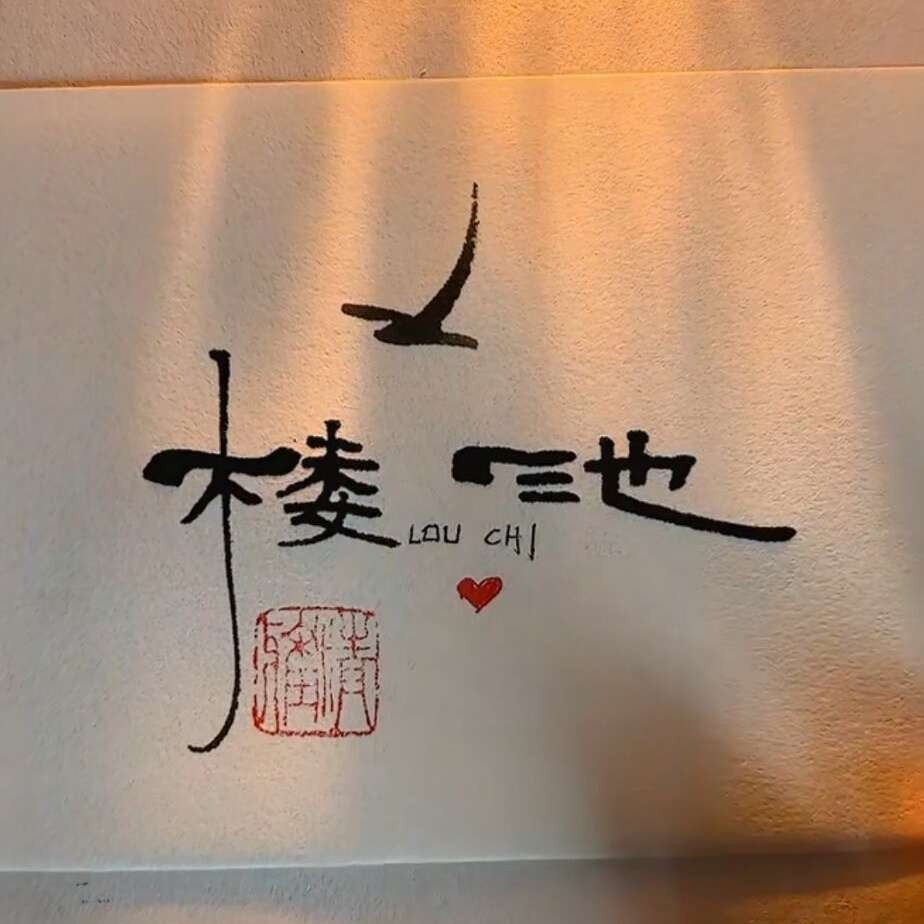 楼池
LOU CHI